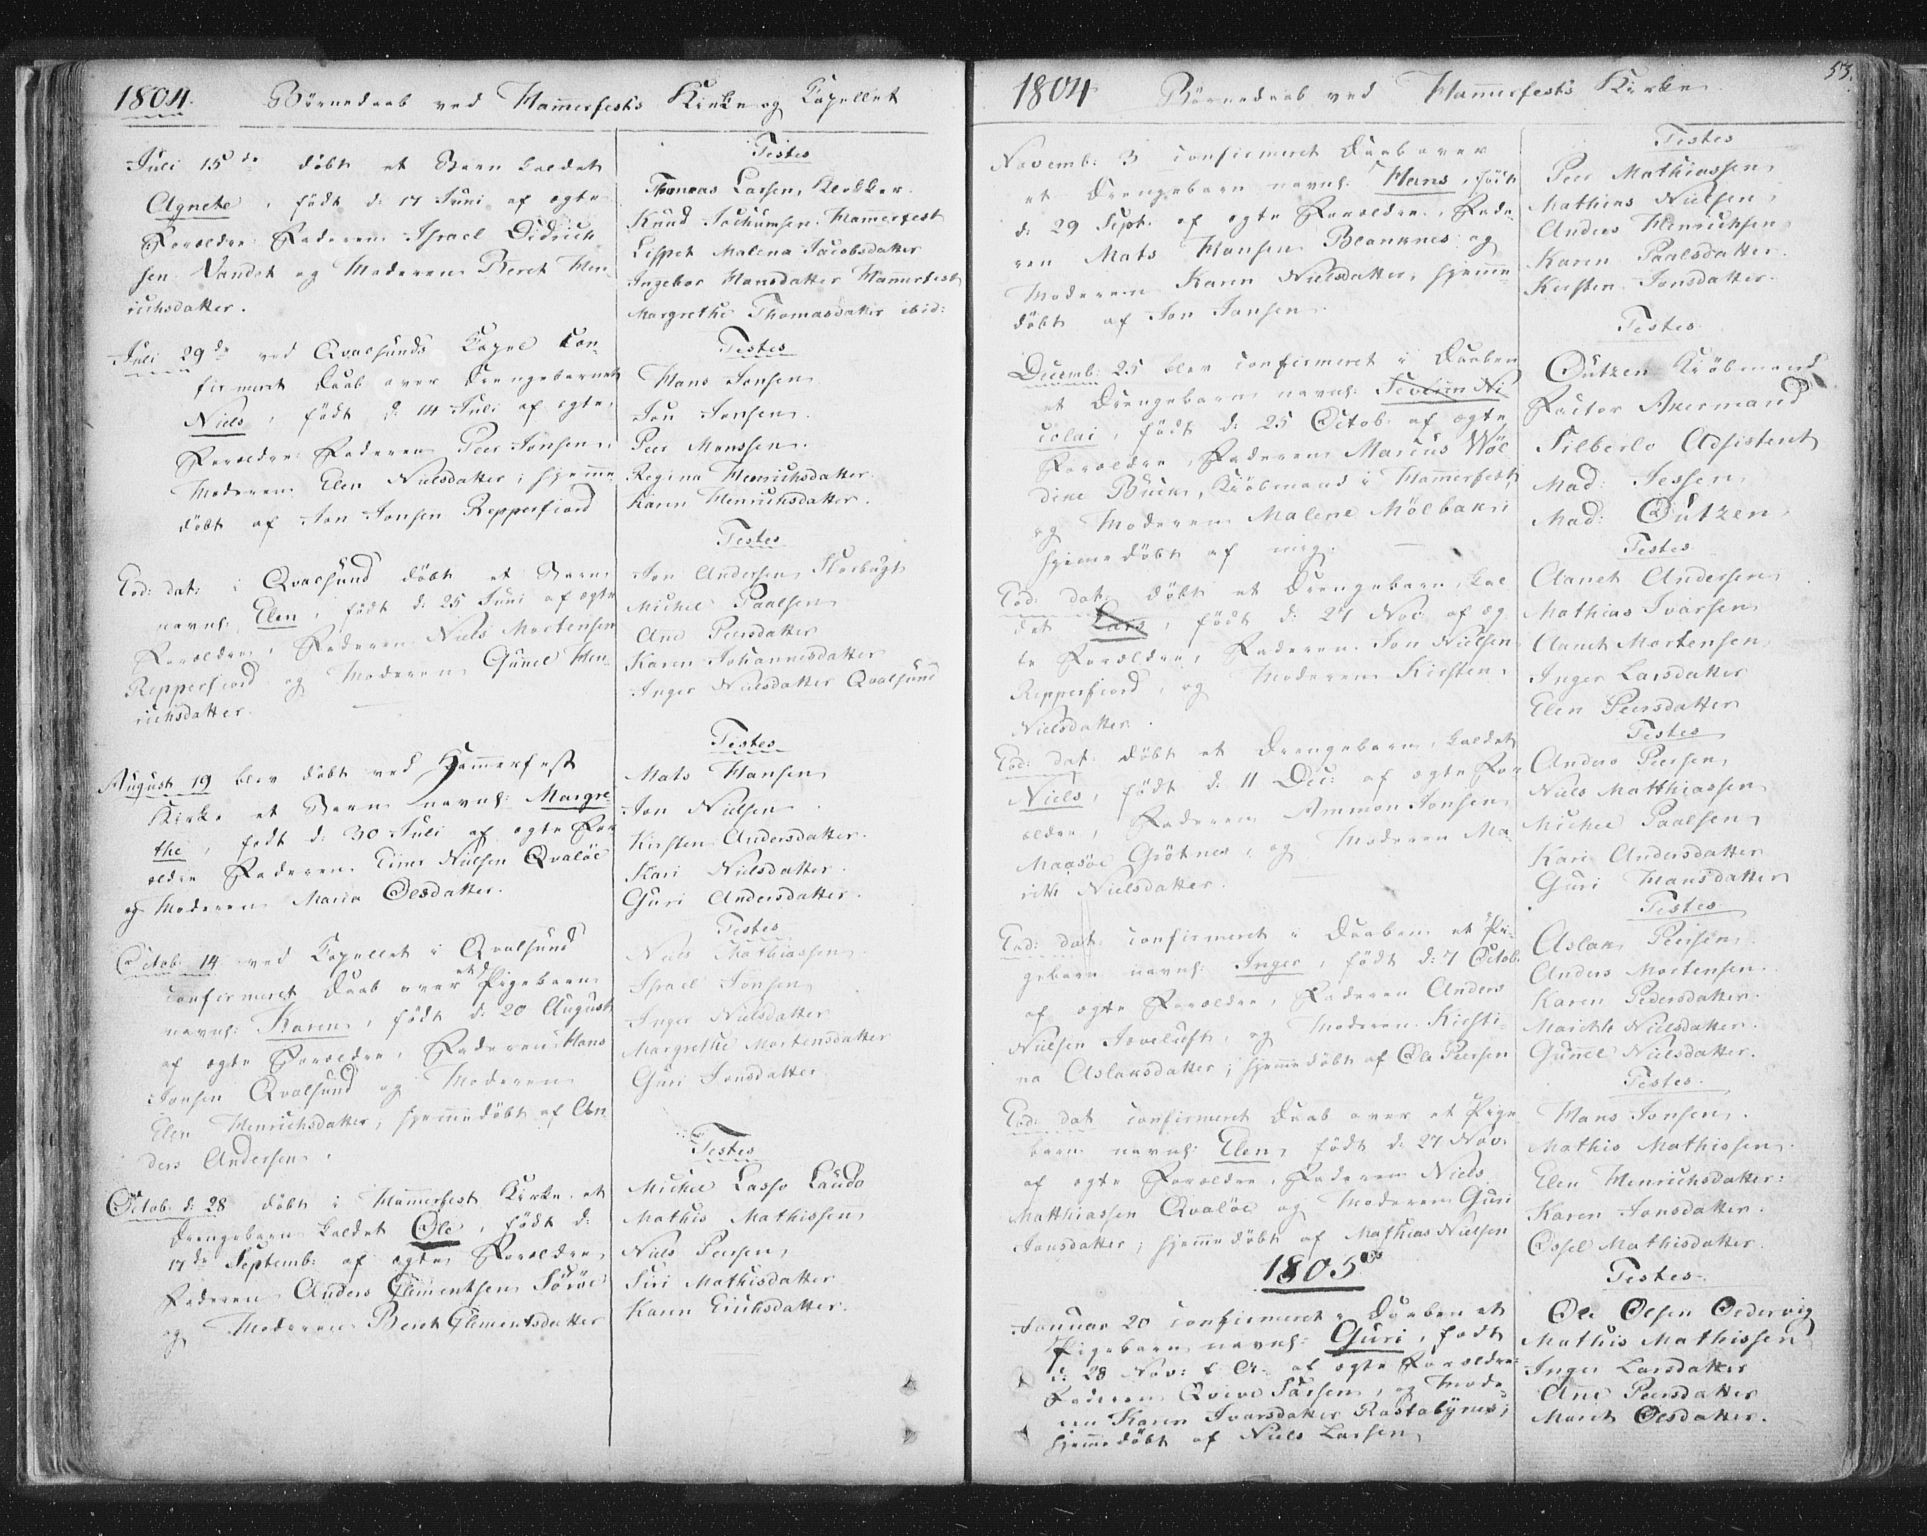 1804. Börnedaab ved Ham̅erfests Kirke og Capellet
Juli 15de döbt et Barn kaldet
Agnete, födt d: 17 Juni af ægte
Forældre Faderen Israel Didrich
sen Vandet og Moderen Beret Hen
richsdatter.
Testes
Thomas Larsen, Klokker.
Knud Jochumsen Ham̅erfest
Lispet Malena Jacobsdatter
Ingebor Hansdatter Ham̅erfest
Margrethe Thomasdatter ibid:
Juli 29de ved Qvalsunds Capel Con-
firmeret Daab over Drengebarnet
Niels, födt d: 14 Juli af ægte
Forældre Faderen Peer Jonsen,
Moderen Elen Nielsdatter; hjem̅e
döbt af Jon Jonsen Repperfiord
Testes
Hans Jonsen
Jon Jonsen.
Peer Monssen.
Regina Henrichsdatter
Karen Henrichsdatter.
Eod: dat: i Qvalsund döbt et Barn
navnl: Elen, födt d: 25 Juni af ægte
Forældre, Faderen Niels Mortensen
Repperfiord og Moderen Gunel Hen-
richsdatter.
Testes
Jon Andersen Storbugt
Michel Paalsen
Ane Peersdatter
Karen Johannesdatter
Inger Nielsdatter Qvalsund
August 19 blev döbt ved Hammerfest
Kirke et Barn navnl: Margre-
the, födt d: 30 Juli af ægte For
ældre Faderen Einer Nielsen Qvalöe
og Moderen Maria Olesdatter.
Testes
Mats Hansen
Jon Nielsen
Kirsten Andersdatter.
Kari Nielsdatter.
Guri Andersdatter.
Octob: 14 ved Capellet i Qvalsund
confirmeret Daab over et Pigebarn
navnl: Karen, födt d: 20 August
af ægte Forældre, Faderen Hans
Jonsen Qvalsund og Moderen
Elen Henrichsdatter, hjem̅edöbt af An
ders Andersen.
Testes
Niels Mathiassen
Israel Jonsen
Inger Nielsdatter
Margrethe Mortensdatter
Guri Jonsdatter
Octob: d: 28 döbt i Ham̅erfest Kirke et
Drengebarn kaldet Ole, födt d:
17de Septemb: af ægte Forældre
Faderen Anders Clementsen Söröe
og Moderen Beret Clementsdatter
Testes
Michel Lasso Laudo
Mathis Mathissen
Niels Persen
Siri Mathisdatter
Karen Erichsdatter.
1804 Börnedaab ved Ham̅erfests Kirke
53.
Novemb: 3 confirmeret Daab over
et Drengebarn navnl: Hans, födt
d: 29 Sept. af ægte Forældre, Fade-
ren Mats Hansen Beannes og
Moderen Karen Nielsdatter, hjem̅e-
döbt af Jon Jonsen
Testes
Peer Mathiassen
Mathias Nielsen
Anders Henrichsen
Karen Paalsdatter
Kirsten Jonsdatter.
Decemb: 25 blev confirmeret i Daaben
et Drengebarn navnl: Severin Ni
colai, födt d: 25 Octob: af ægte
Forældre, Faderen Marcus Wöl
dike Buck, Kiöbmand i Ham̅erfest
og Moderen Malene Mölbak;
hjemedöbt af mig.
Testes
Outzen Kiöbmand
Factor Akermand
Silberlo Adsistent
Mad: Jessen
Mad: Outzen
Eod: dat: döbt et Drengebarn kal
det Lars, födt d: 24 Nov: af æg
te Forældre, Faderen Jon Nielsen
Repperfiord, og Moderen Kirsten
Nielsdatter.
Testes
Aanet Andersen
Mathias Ivarsen
Aanet Mortensen
Inger Larsdatter
Elen Peersdatter
Eod: dat: döbt et Drengebarn, kaldet
Niels, födt d: 11 Dec: af ægte For
ældre, Faderen Ammon Jonsen
Maasöe Grötnes, og Moderen Ma-
rite Nielsdatter.
Testes
Anders Peersen
Niels Matthiassen
Michel Paalsen
Kari Andersdatter
Guri Hansdatter
Eod: dat: confirmeret i Daaben et Pi-
gebarn navnl: Inger, födt d: 7 Octob:
af ægte Forældre, Faderen Anders
Nielsen Joveluft, og Moderen Kirsti-
na Aslaksdatter; hjem̅edöbt af Ole Peersen
Testes
Aslak Peersen
Anders Mortensen.
Karen Pedersdatter.
Maritte Nielsdatter.
Gunel Nielsdatter.
Eod: dat confirmeret Daab over et Pige
barn navnl: Elen, födt d: 27 Nov:
af ægte Forældre, Faderen Niels
Matthiassen Qvalöe og Moderen Guri
Jonsdatter; hjem̅edöbt af Mathias Nielsen
Testes
Hans Jonsen.
Mathis Mathissen.
Elen Henrichsdatter:
Karen Jonsdatter.
Ossel Mathisdatter.
1805
Januar 20 confirmeret i Daaben et
Pigebarn navnl: Guri, födt
d: 28 Nov: f. A. af ægte Forældre:
Faderen Qvive Larsen, og Mode-
ren Karen Ivarsdatter Rastabynes;
hjem̅edöbt af Niels Larsen
Testes
Ole Olsen Oldervig
Mathis Mathissen
Inger Larsdatter
Ane Peersdatter
Marit Olsdatter.